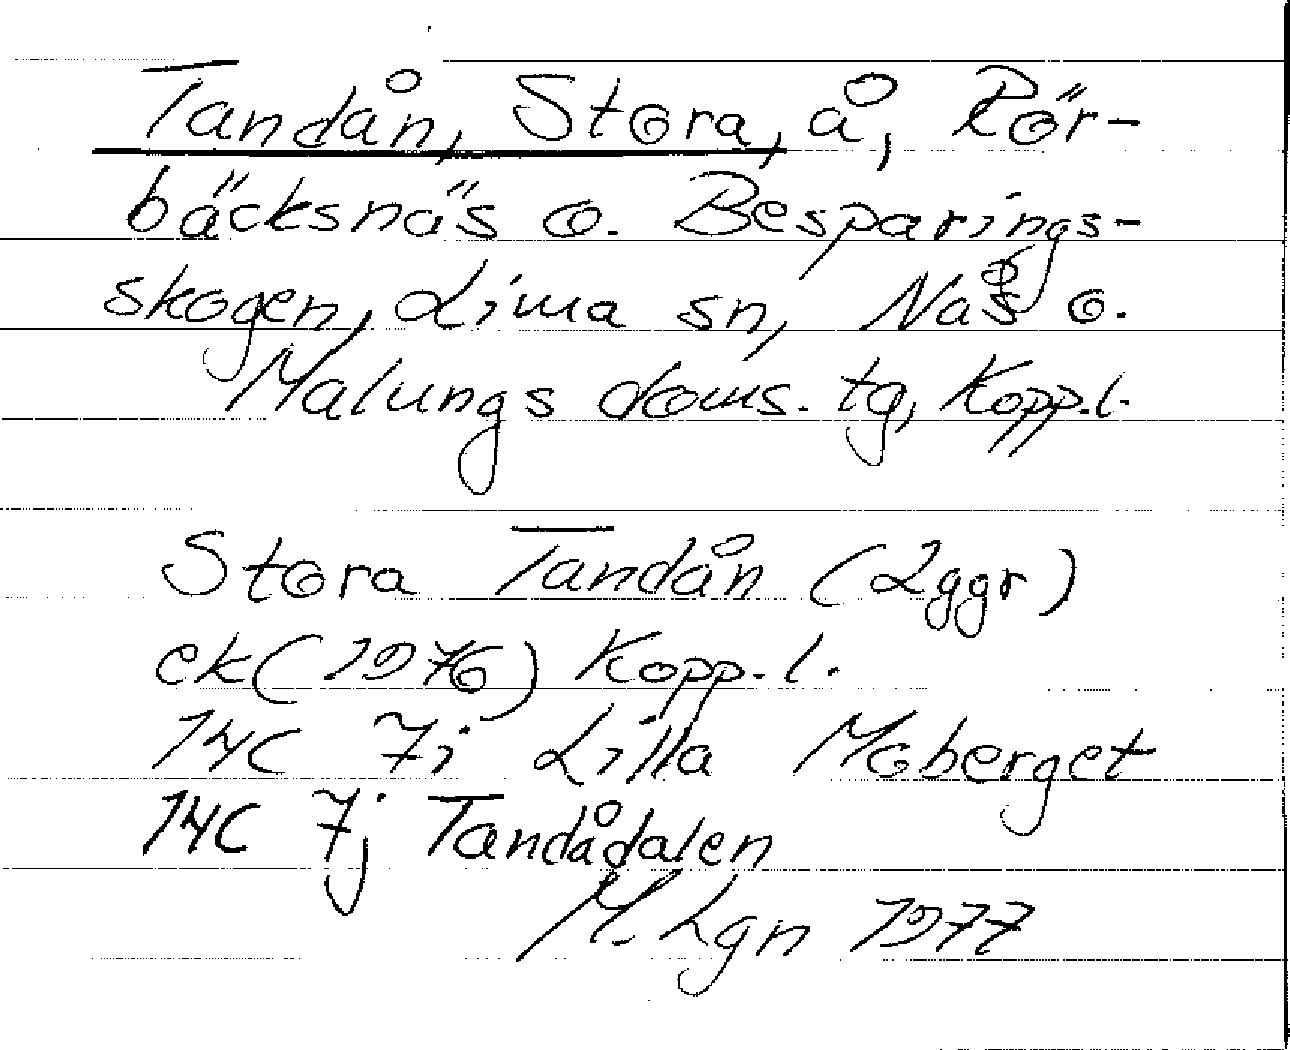 Tandån, Stora, å, Rör-
bäcksnäs o. Besparings-
skogen, Lima sn, Nås o.
Malungs doms. tg, Kopp.l.
Stora Tandån (2ggr)
ek(1976) Kopp.l.
14C 7i Lilla Moberget
14C 7j Tandådalen
M. Lgn 1977